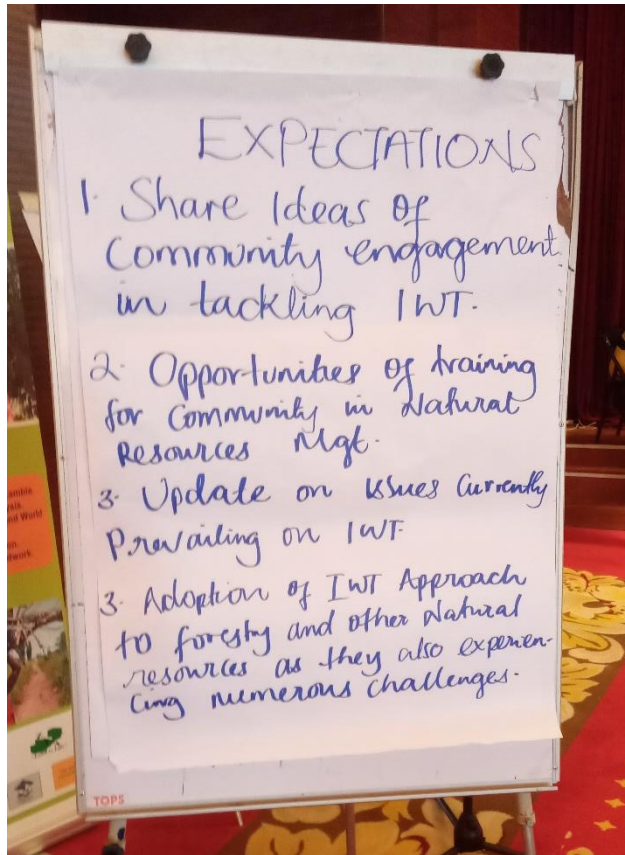 EXPECTATIONS
1. Share Ideas of
Community engagement
in tackling IWT.
2. Opportunities of training
for Community in Natural
Resources Mgt.
3. Update on issues Currently
Prevailing on IWT
3. Adoption of IWT Approach
to foresty and other Natural
resources as they also experien-
cing numerous challenges.
TOPS
and World